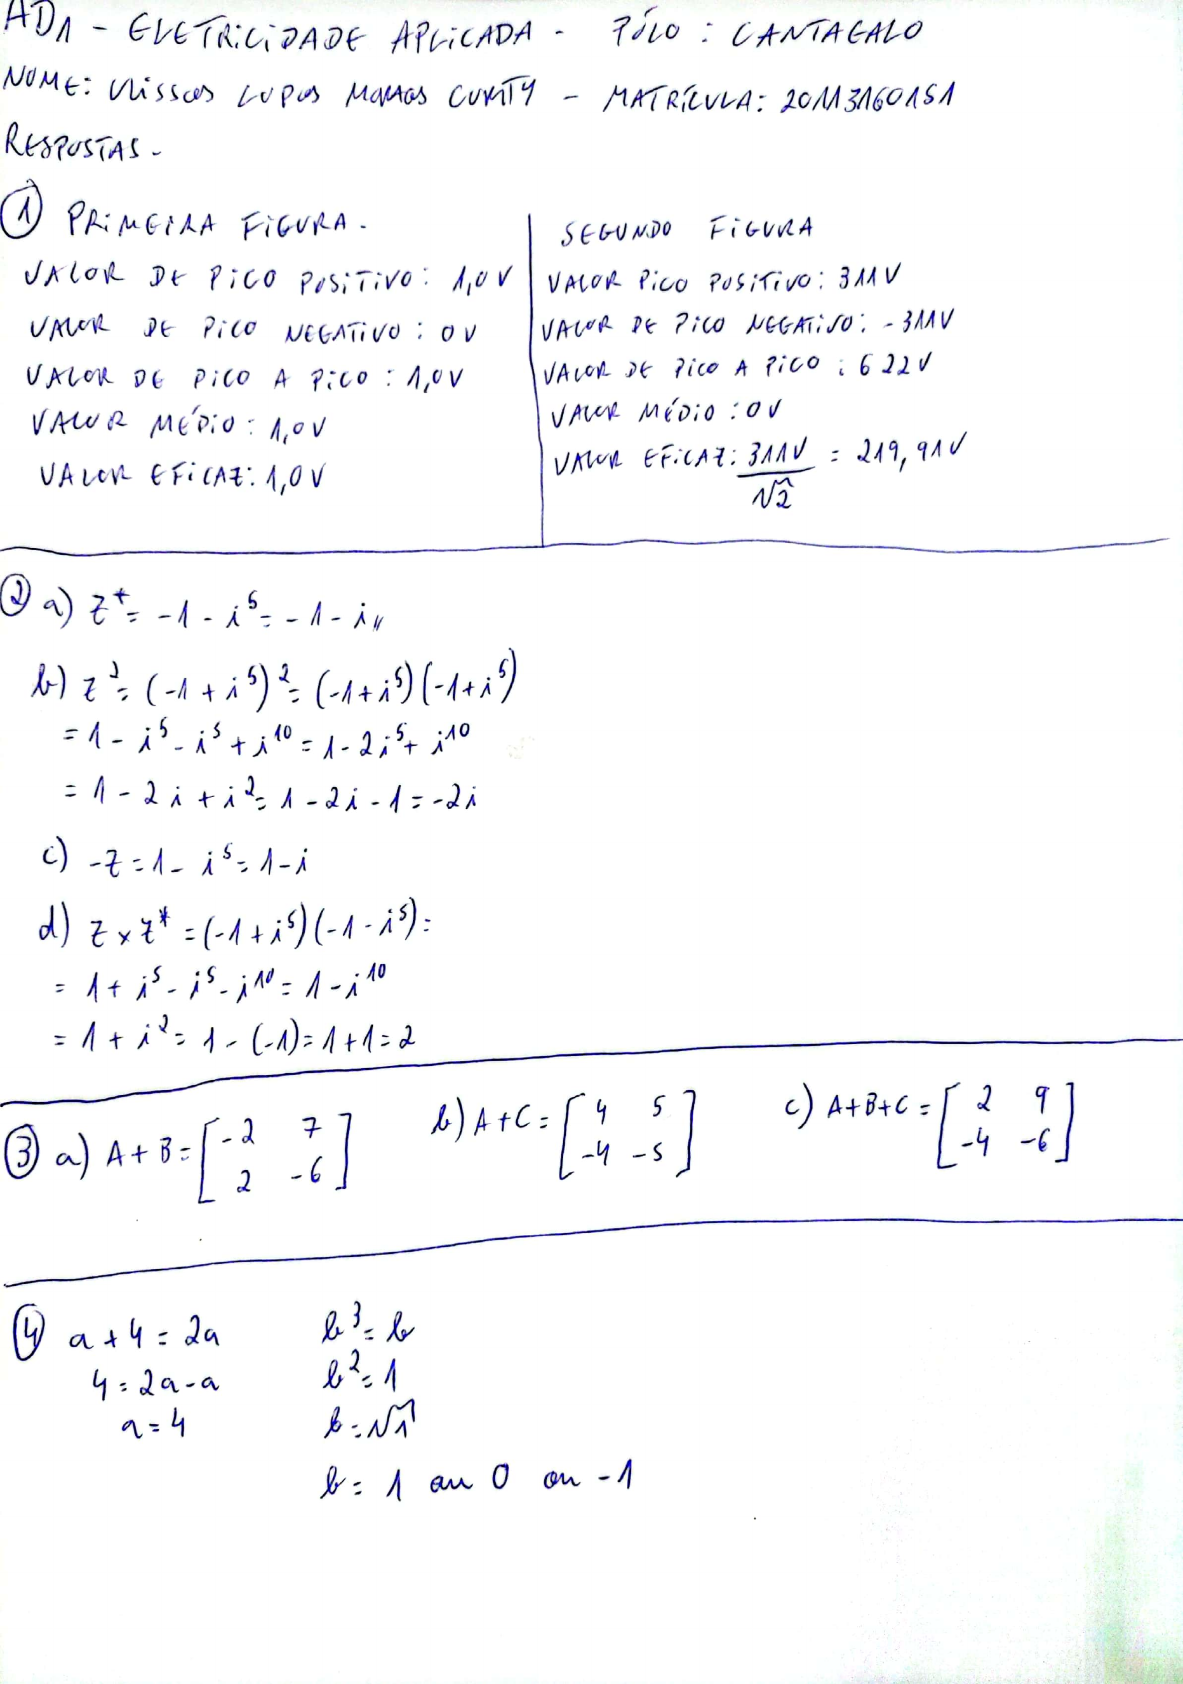 AD1 - ELETRICIDADE APLICADA - PÓLO : CANTAGALO
NOME: Ulisses Lopes Moraes CURITY - MATRÍCULA: 20113160151
RESPOSTAS -
1 PRIMEIRA FIGURA -
VALOR DE PICO POSITIVO: 1,0 V
VALOR DE PICO NEGATIVO : 0 V
VALOR DE PICO A PICO : 1,0 V
VALOR MÉDIO : 1,0 V
VALOR EFICAZ: 1,0 V
SEGUNDO FIGURA
VALOR PICO POSITIVO: 311 V
VALOR DE PICO NEGATIVO: - 311 V
VALOR DE PICO A PICO : 622 V
VALOR MÉDIO : 0 V
VALOR EFICAZ: 311V/√2 = 219,91 V
2 a) z* = -1 - i⁵ = -1 - i //
b) z² = (-1 + i⁵)² = (-1 + i⁵)(-1 + i⁵)
= 1 - i⁵ - i⁵ + i¹⁰ = 1 - 2i⁵ + i¹⁰
= 1 - 2i + i² = 1 - 2i - 1 = -2i
c) -z = 1 - i⁵ = 1 - i
d) z x z* = (-1 + i⁵)(-1 - i⁵) =
= 1 + i⁵ - i⁵ - i¹⁰ = 1 - i¹⁰
= 1 + i² = 1 - (-1) = 1 + 1 = 2
3 a) A + B = [-2 7
2 -6]
b) A + C = [4 5
-4 -5]
c) A + B + C = [2 9
-4 -6]
4 a + 4 = 2a
4 = 2a - a
a = 4
b³ = b
b² = 1
b = √1
b = 1 ou 0 ou -1